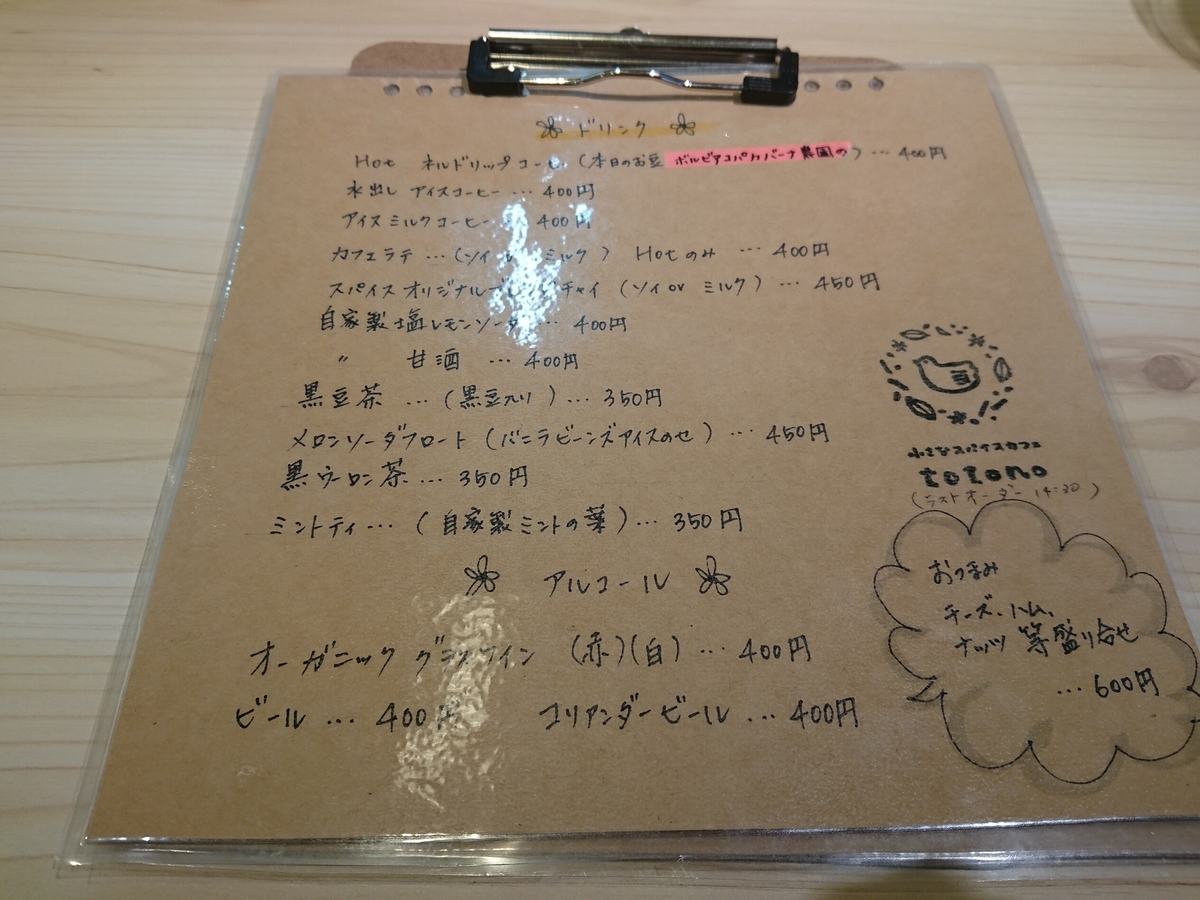 ドリンク
Hot ネルドリップコーヒー (本日のお豆 ボルビアコパカバーナ農園の) … 400円
水出し アイスコーヒー … 400円
アイスミルクコーヒー 400円
カフェラテ … (ソイ or ミルク) Hotのみ … 400円
スパイス オリジナルブレンドチャイ (ソイ or ミルク) … 450円
自家製塩レモンソーダ … 400円
〃 甘酒 … 400円
黒豆茶 … (黒豆入り) … 350円
メロンソーダフロート (バニラビーンズアイスのせ) … 450円
黒ウーロン茶 … 350円
ミントティ … (自家製ミントの葉) … 350円
小さなスパイスカフェ
totono
(ラストオーダー 14:30)
アルコール
オーガニック グラスワイン (赤)(白) … 400円
ビール … 400円 コリアンダービール … 400円
おつまみ
チーズ、ハム、
ナッツ 等盛り合せ
… 600円